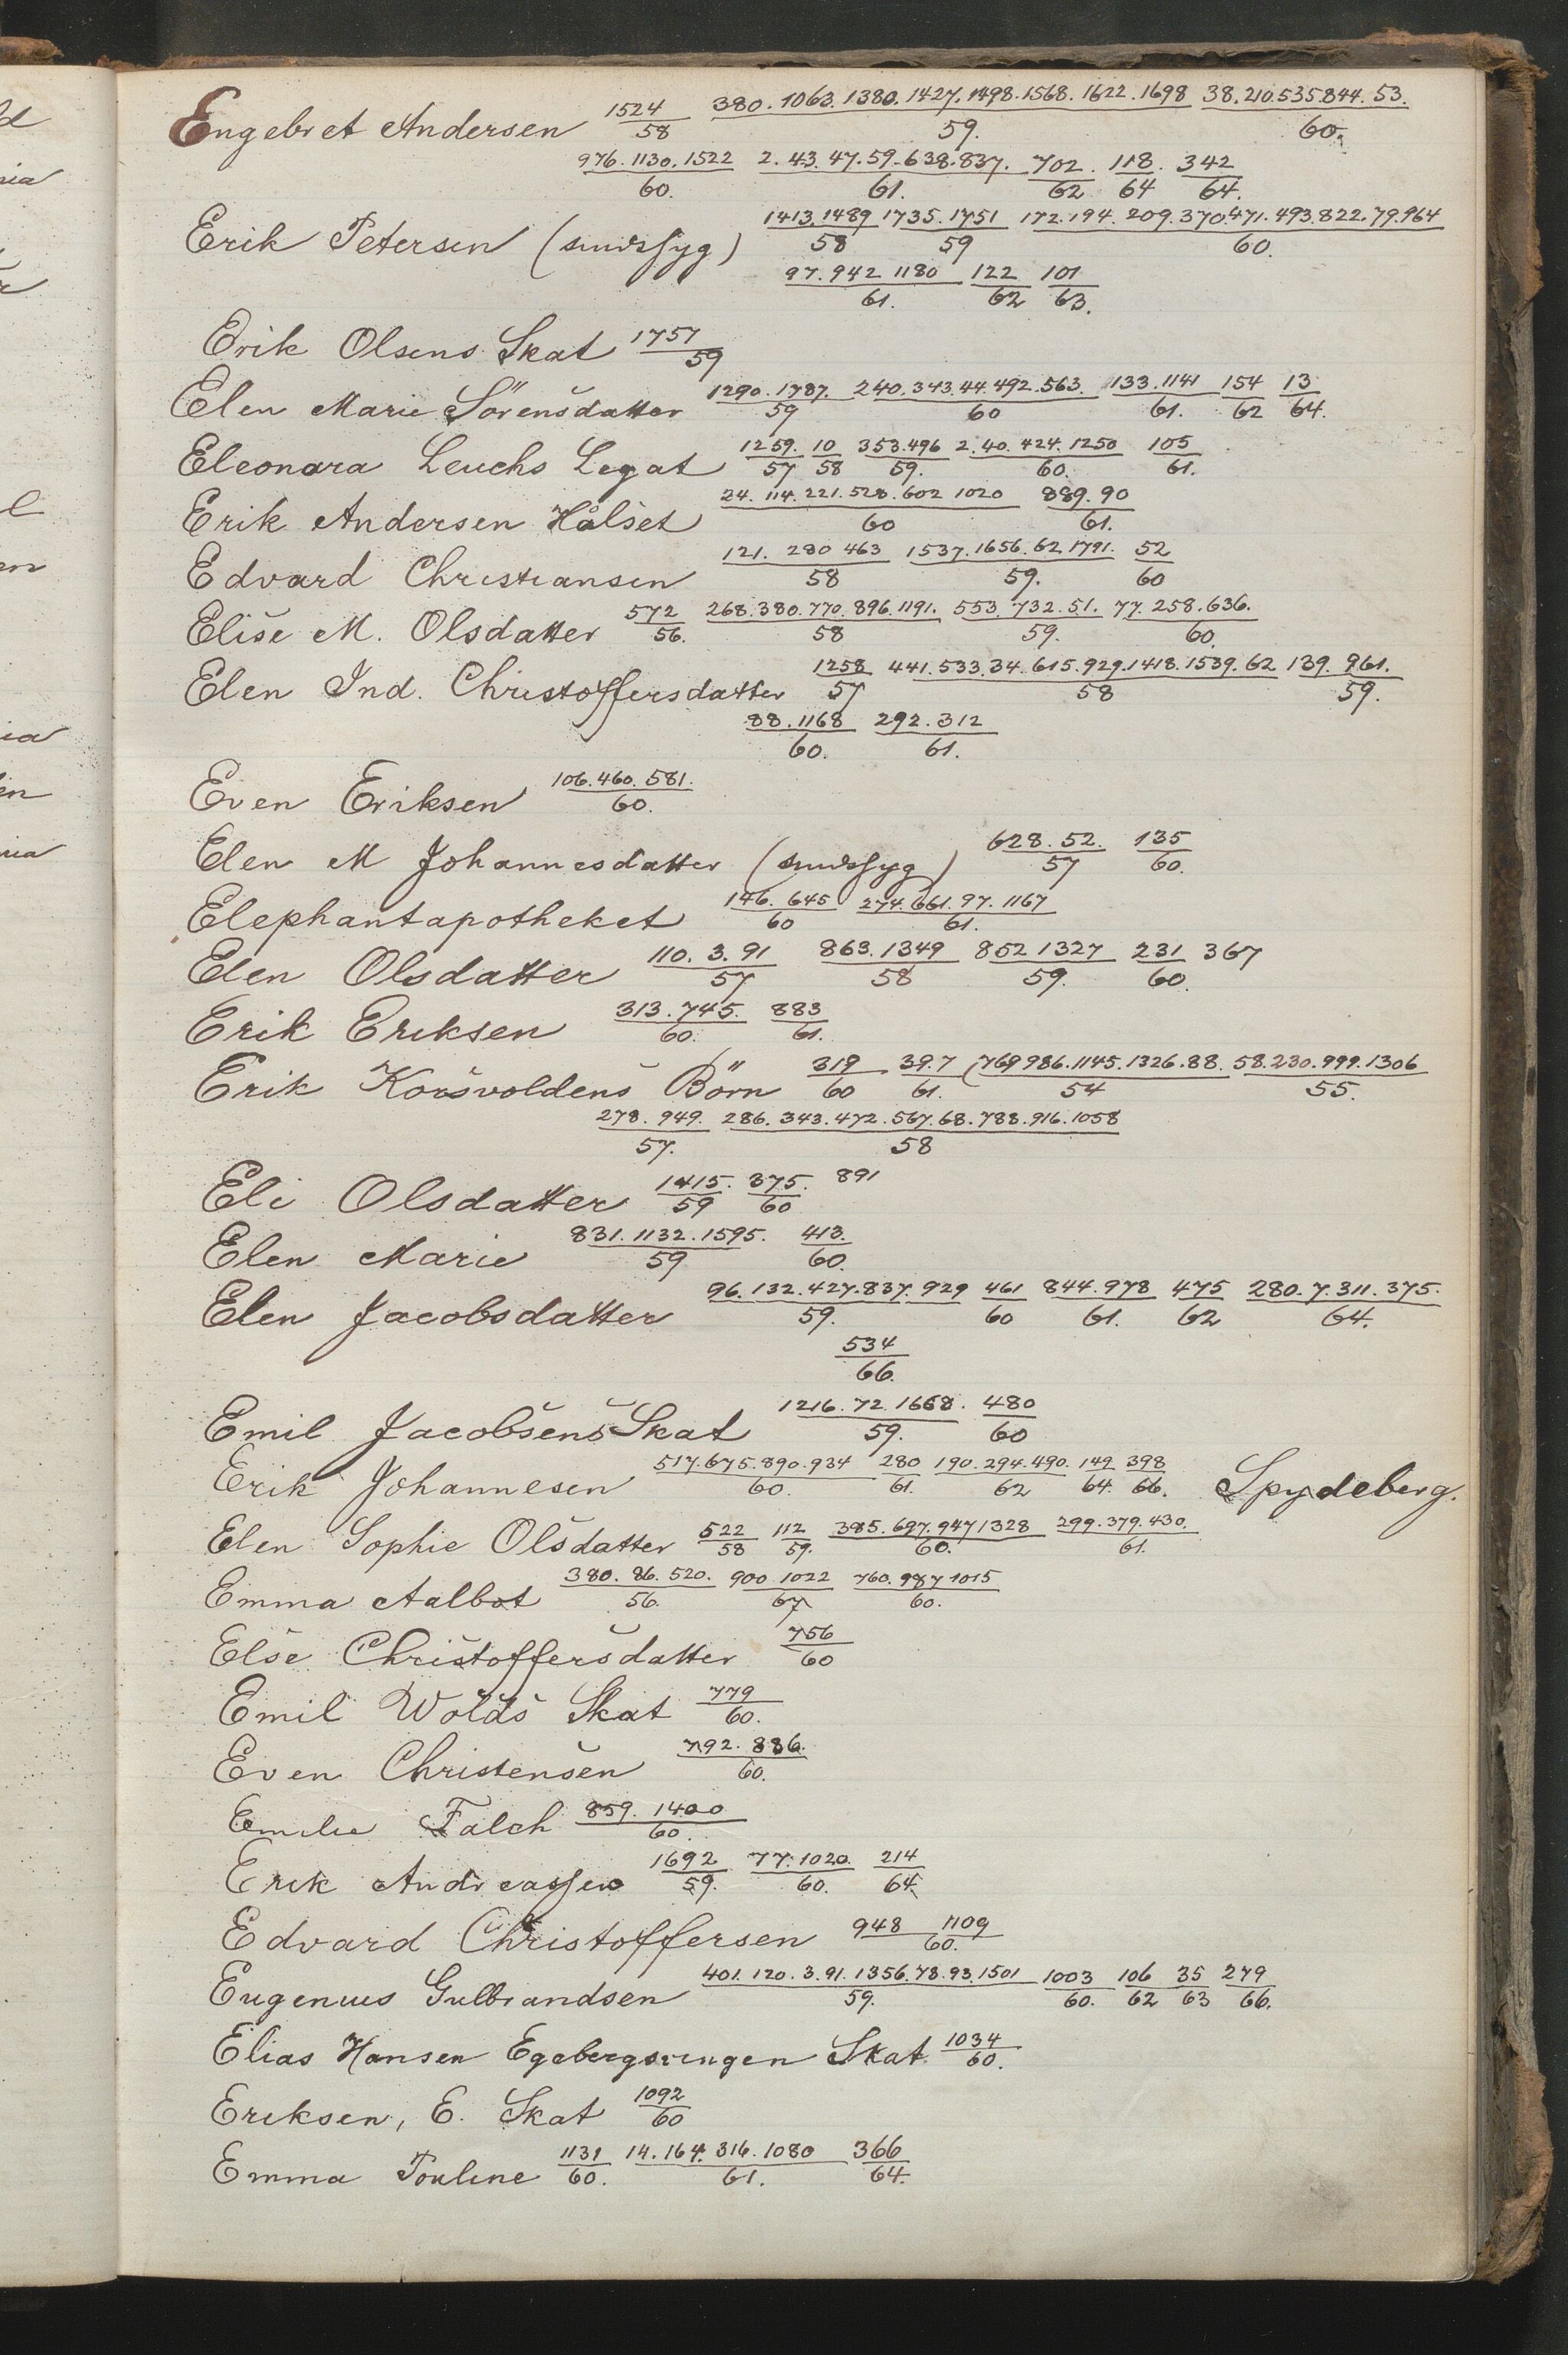 Engebret Andersen 1524/58 380.1063.1380.1427.1498.1568.1622.1698/59. 38.210.535.844.53./60.
976.1130.1522/60. 2.43.47.59.638.837./61. 702/62 118/64 342/64.
Erik Petersen (sindssyg) 1413.1489/58 1735.1751/59 172.194.209.370.471.493.822.79.964/60.
97.942 1180/61. 122/62 101/63.
Erik Olsens Skat 1757/59
Elen Marie Sörensdatter 1290.1787./59 240.343.44.492.563./60 133.1141/61. 154/62 13/64.
Eleonora Leuchs Legat 1259./57 10/58 353.496/59. 2.40.424.1250/60. 105/61.
Erik Andersen Hålset 24.114.221.528.602 1020/60 889.90/61.
Edvard Christiansen 121. 280 463/58 1537.1656.62 1791./59. 52/60
Elise M. Olsdatter 572/56. 268.380.770.896.1191./58 553.732.51./59. 77.258.636./60.
Elen Ind. Christoffersdatter 1258/57 441.533.34.615.929.1418.1539.62/58 139.961./59.
88.1168/60. 292.312/61.
Even Eriksen 106.460.581./60.
Elen M Johannesdatter (sindssyg) 628.52./57 135/60.
Elephantapotheket 146.645/60 274.661.97.1167/61.
Elen Olsdatter 110.3.91/57 863.1349/58 852 1327/59. 231/60. 367
Erik Eriksen 313.745./60. 883/61.
Erik Korsvoldens Börn 319/60 39.7/61. (769 986.1145.1326.88./54 58.230.999.1306/55.
278.949./57. 286.343.472.567.68.788.916.1058/58
Eli Olsdatter 1415./59 375./60 891
Elen Marie 831.1132.1595./59 413./60.
Elen Jacobsdatter 96.132.427.837.929/59. 461/60 844.978/61. 475/62 280.7.311.375./64.
534/66.
Emil Jacobsens Skat 1216.72.1668./59. 480/60
Erik Johannesen 517.675.890.934/60. 280/61. 190.294.490./62 149/64. 398/66. Spydeberg.
Elen Sophie Olsdatter 522/58 112/59. 385.697.947 1328/60. 299.379.430./61.
Emma Aalbot 380.86.520./56. 900 1022/67 760.987 1015/60.
Else Christoffersdatter 756/60
Emil Wolds Skat 779/60.
Even Christensen 792.886./60.
Emilie Falch 859.1400/60.
Erik Andreassen 1692/59. 77.1020./60. 214/64.
Edvard Christoffersen 948 1109/60.
Eugenius Gulbrandsen 401.120.3.91.1356.78.93.1501/59. 1003/60. 106/62 35/63 279/66.
Elias Hansen Egebergsringen Skat. 1034/60.
Eriksen, E. Skat 1092/60
Emma Pouline 1131/60. 14.164.316.1080/61. 366/64.